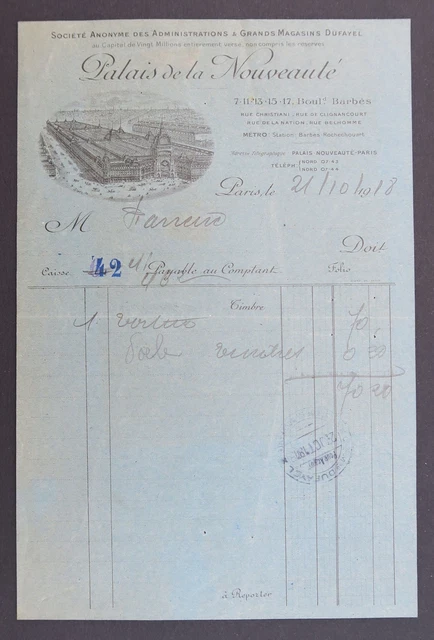 SOCIÉTÉ ANONYME DES ADMINISTRATIONS & GRANDS MAGASINS DUFAYEL
au Capital de Vingt Millions entièrement versé, non compris les réserves
Palais de la Nouveauté
7-11-13-15-17, Boulᵈ Barbès
RUE CHRISTIANI, RUE DE CLIGNANCOURT
RUE DE LA NATION, RUE NEUHOMME
MÉTRO: Station Barbès Rochechouart
Adresse Télégraphique: PALAIS NOUVEAUTÉ-PARIS
TÉLÉPH. NORD 07-43
NORD 07-44
Paris, le 21/10/1918
M
Doit
Caisse 42 Payable au Comptant Folio
Timbre
1 70
0 20
70 20
DUFAYEL
à Reporter